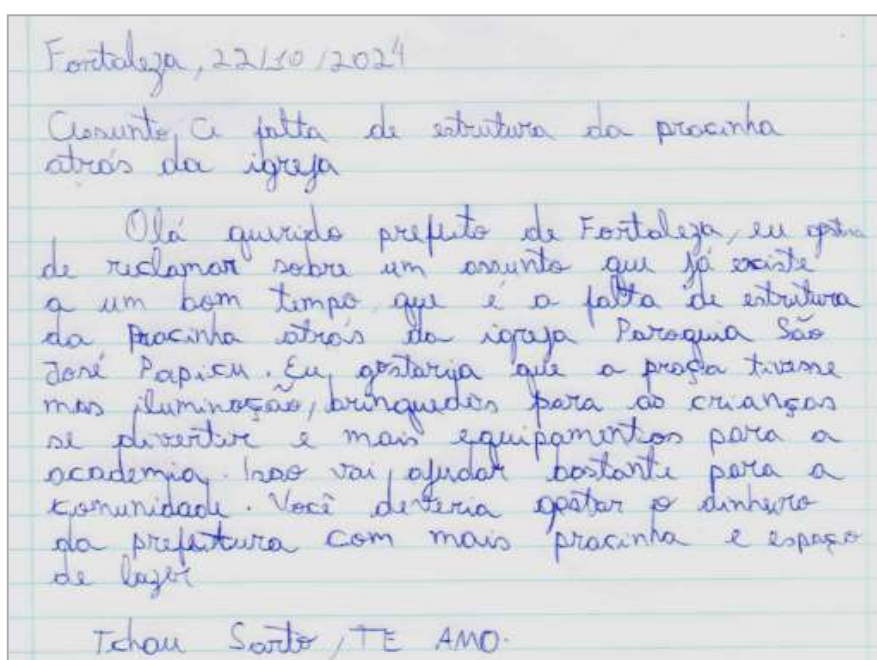 Fortaleza, 22/10/2024
Assunto, A falta de estrutura da pracinha
atrás da igreja
Olá querido prefeito de Fortaleza, eu gostria
de reclamar sobre um assunto que já existe
a um bom tempo, que é a falta de estrutura
da pracinha atrás da igreja Paroquia São
José Papicu. Eu, gostarija que a praça tivesse
mas iluminação, brinquedos para as crianças
se divertir e mais equipamentos para a
academia. Isso vai ajudar bastante para a
comunidade. Você deveria gastar o dinheiro
da prefeitura com mais pracinha e espaço
de lazer
Tchau Sarto, TE AMO.